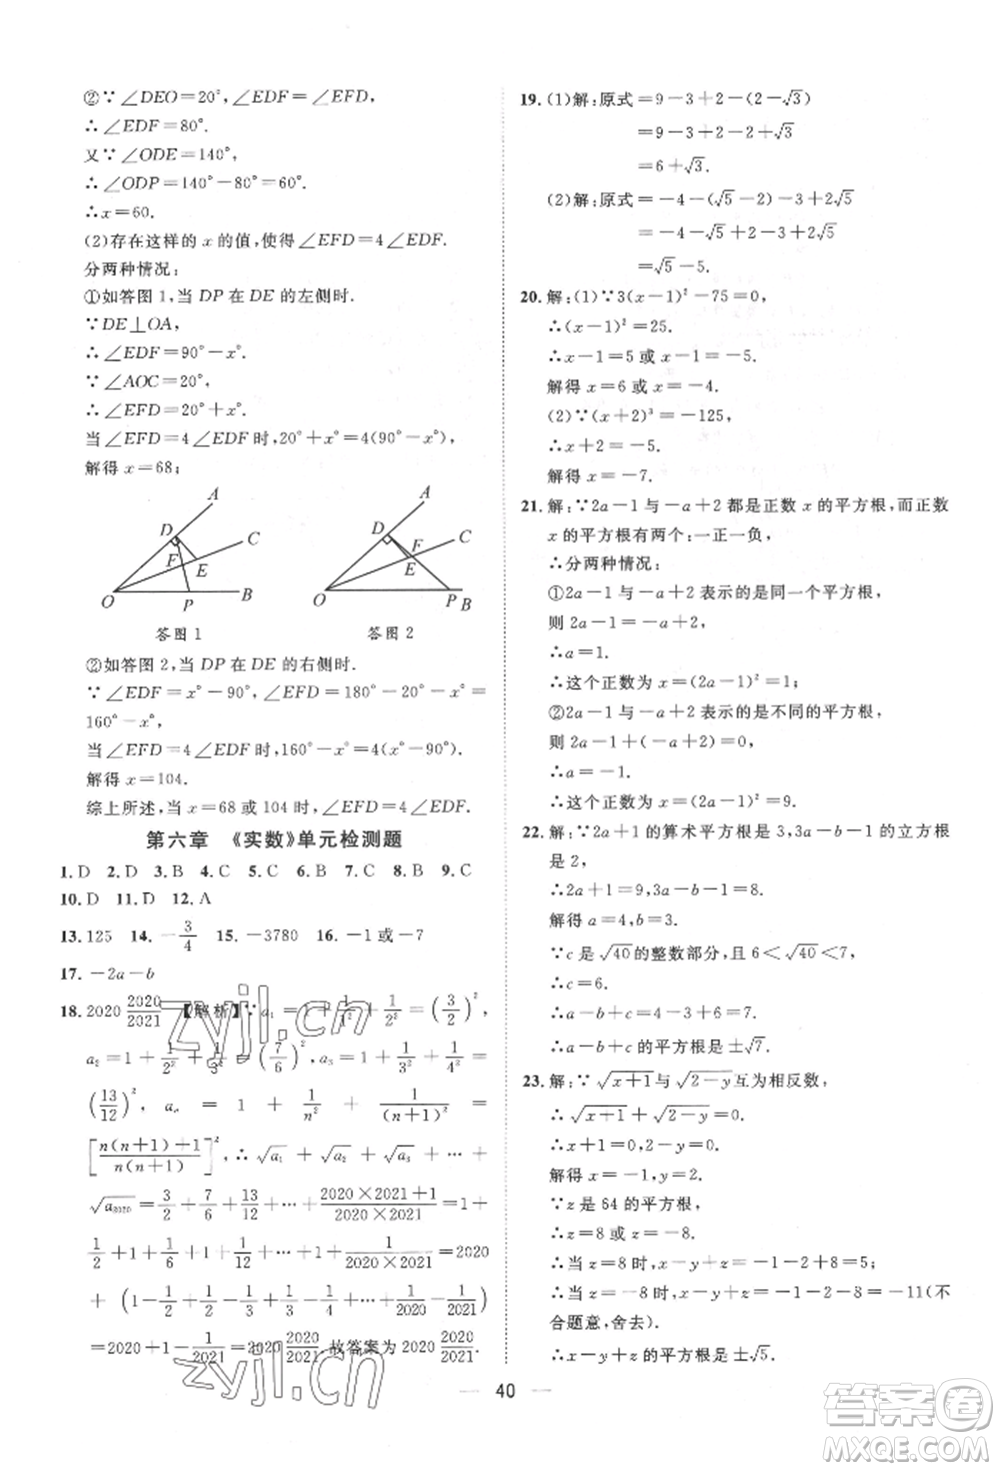 ②∵∠DEO=20°,∠EDF=∠EFD,
∴∠EDF=80°.
又∵∠ODE=140°,
∴∠ODP=140°-80°=60°.
∴x=60.
(2)存在这样的 x 的值,使得∠EFD=4∠EDF.
分两种情况:
①如答图 1,当 DP 在 DE 的左侧时.
∵DE⊥OA,
∴∠EDF=90°-x°.
∵∠AOC=20°,
∴∠EFD=20°+x°.
当∠EFD=4∠EDF时,20°+x°=4(90°-x°),
解得 x=68;
A
D
C
F
E
O
P
B
答图 1
A
D
C
F
E
O
P B
答图 2
②如答图 2,当 DP 在 DE 的右侧时.
∵∠EDF=x°-90°,∠EFD=180°-20°-x°=
160°-x°,
当∠EFD=4∠EDF时,160°-x°=4(x°-90°).
解得 x=104.
综上所述,当 x=68 或 104 时,∠EFD=4∠EDF.
第六章 《实数》单元检测题
1.D 2.D 3.B 4.C 5.C 6.B 7.C 8.B 9.C
10.D 11.D 12.A
13.125 14.-3/4 15.-3780 16.-1或-7
17.-2a-b
18.2020 2020/2021 【解析】∵a₁=1+1/1²+1/2²=(3/2)²,
a₂=1+1/2²+1/3²=(7/6)²,a₃=1+1/3²+1/4²=
(13/12)²,…,aₙ=1+1/n²+1/(n+1)²=
[n(n+1)+1/n(n+1)]²,∴√a₁+√a₂+√a₃+…+
√a₂₀₂₀=3/2+7/6+13/12+…+2020×2021+1/2020×2021=1+
1/2+1+1/6+1+1/12+…+1+1/2020×2021=2020
+(1-1/2+1/2-1/3+1/3-1/4+…+1/2020-1/2021)
=2020+1-1/2021=2020 2020/2021.故答案为 2020 2020/2021.
19.(1)解:原式=9-3+2-(2-√3)
=9-3+2-2+√3
=6+√3.
(2)解:原式=-4-(√5-2)-3+2√5
=-4-√5+2-3+2√5
=√5-5.
20.解:(1)∵3(x-1)²-75=0,
∴(x-1)²=25.
∴x-1=5 或 x-1=-5.
解得 x=6 或 x=-4.
(2)∵(x+2)³=-125,
∴x+2=-5.
解得 x=-7.
21.解:∵2a-1与-a+2都是正数 x 的平方根,而正数
x 的平方根有两个:一正一负,
∴分两种情况:
①2a-1与-a+2表示的是同一个平方根,
则 2a-1=-a+2,
∴a=1.
∴这个正数为 x=(2a-1)²=1;
②2a-1与-a+2表示的是不同的平方根,
则 2a-1+(-a+2)=0,
∴a=-1.
∴这个正数为 x=(2a-1)²=9.
22.解:∵2a+1 的算术平方根是 3,3a-b-1 的立方根
是 2,
∴2a+1=9,3a-b-1=8.
解得 a=4,b=3.
∵c 是√40的整数部分,且 6<√40<7,
∴c=6.
∴a-b+c=4-3+6=7.
∴a-b+c 的平方根是±√7.
23.解:∵√x+1与√2-y互为相反数,
∴√x+1+√2-y=0.
∴x+1=0,2-y=0.
解得 x=-1,y=2.
∵z 是 64 的平方根,
∴z=8 或 z=-8.
∴当 z=8 时,x-y+z=-1-2+8=5,
∴当 z=-8 时,x-y+z=-1-2-8=-11(不
合题意,舍去).
∴x-y+z 的平方根是±√5.
40
zyjl.cn
zyjl.cn
答案圈
MXQE.COM